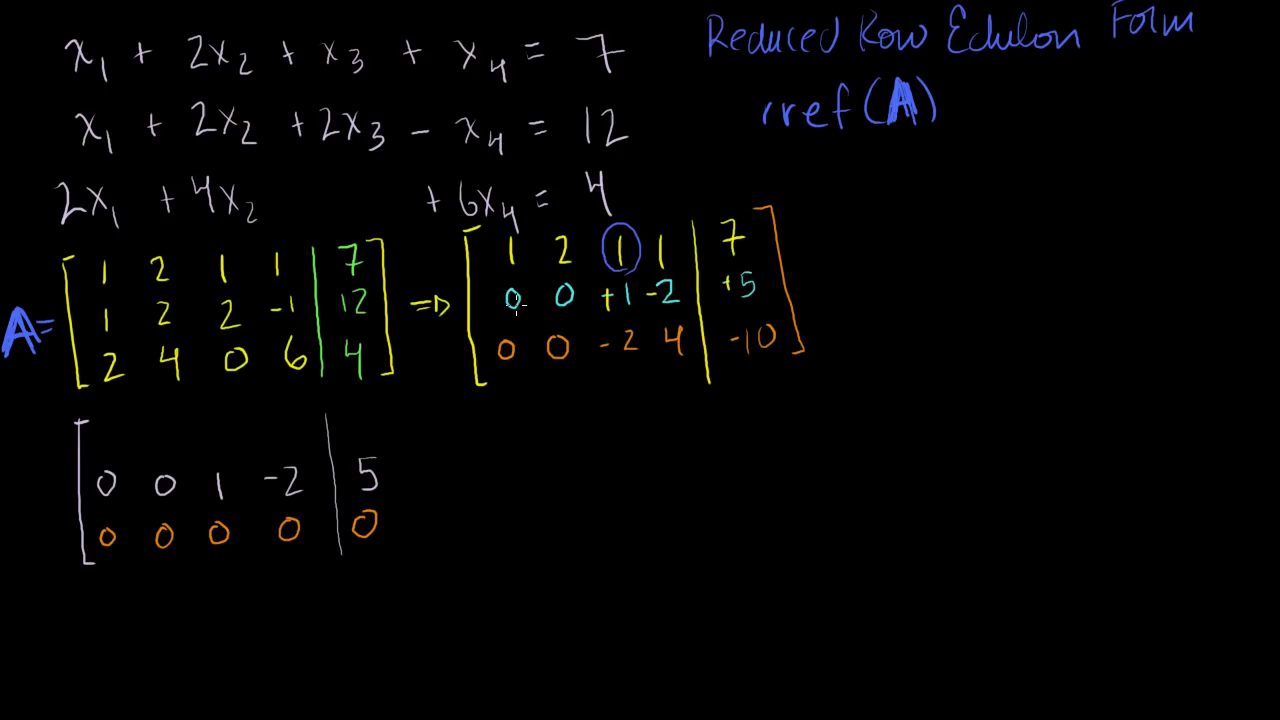 x₁ + 2x₂ + x₃ + x₄ = 7
x₁ + 2x₂ + 2x₃ - x₄ = 12
2x₁ + 4x₂ + 6x₄ = 4
Reduced Row Echelon Form
rref(A)
A= [ 1 2 1 1 | 7 ]
1 2 2 -1 | 12
2 4 0 6 | 4
⇒ [ 1 2 1 1 | 7 ]
0 0 +1 -2 | +5
0 0 -2 4 | -10
[ 0 0 1 -2 | 5
0 0 0 0 | 0